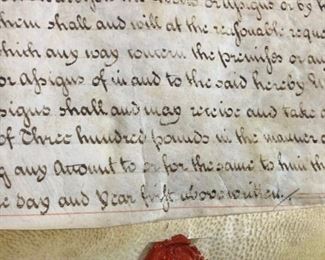 them shall and will at the reasonable reque
which any way concern the premises or an
or assigns of in and to the said hereby
ssigns shall and may receive and take
of Three hundred pounds in the manner
g any Account to or for the same to him th
e day and year first above written